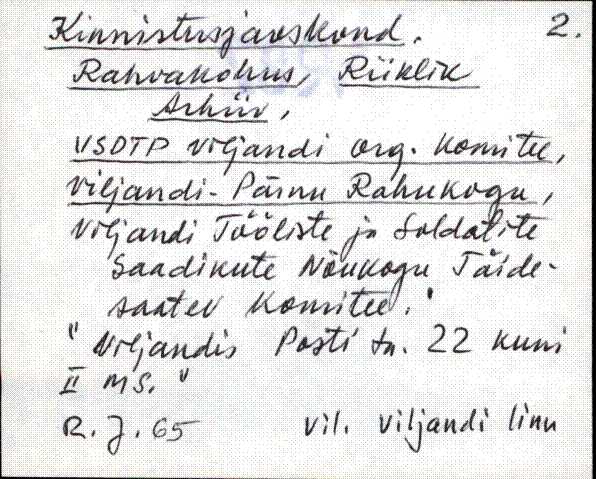 Kinnistusjaoskond. 2.
Rahvakohus, Riiklik
Arhiiv,
VSDTP Viljandi org. komitee,
Viljandi-Pärnu Rahukogu,
Viljandi Tööliste ja Soldatite
Saadikute Nõukogu Täide-
saatev Komitee."
"Viljandis Posti tn. 22 kuni
II MS."
R. J. 65 Vil. Viljandi linn